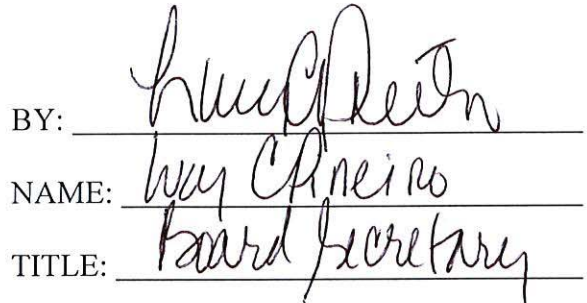 BY:
NAME: Lucy C Pineiro
TITLE: Board Secretary